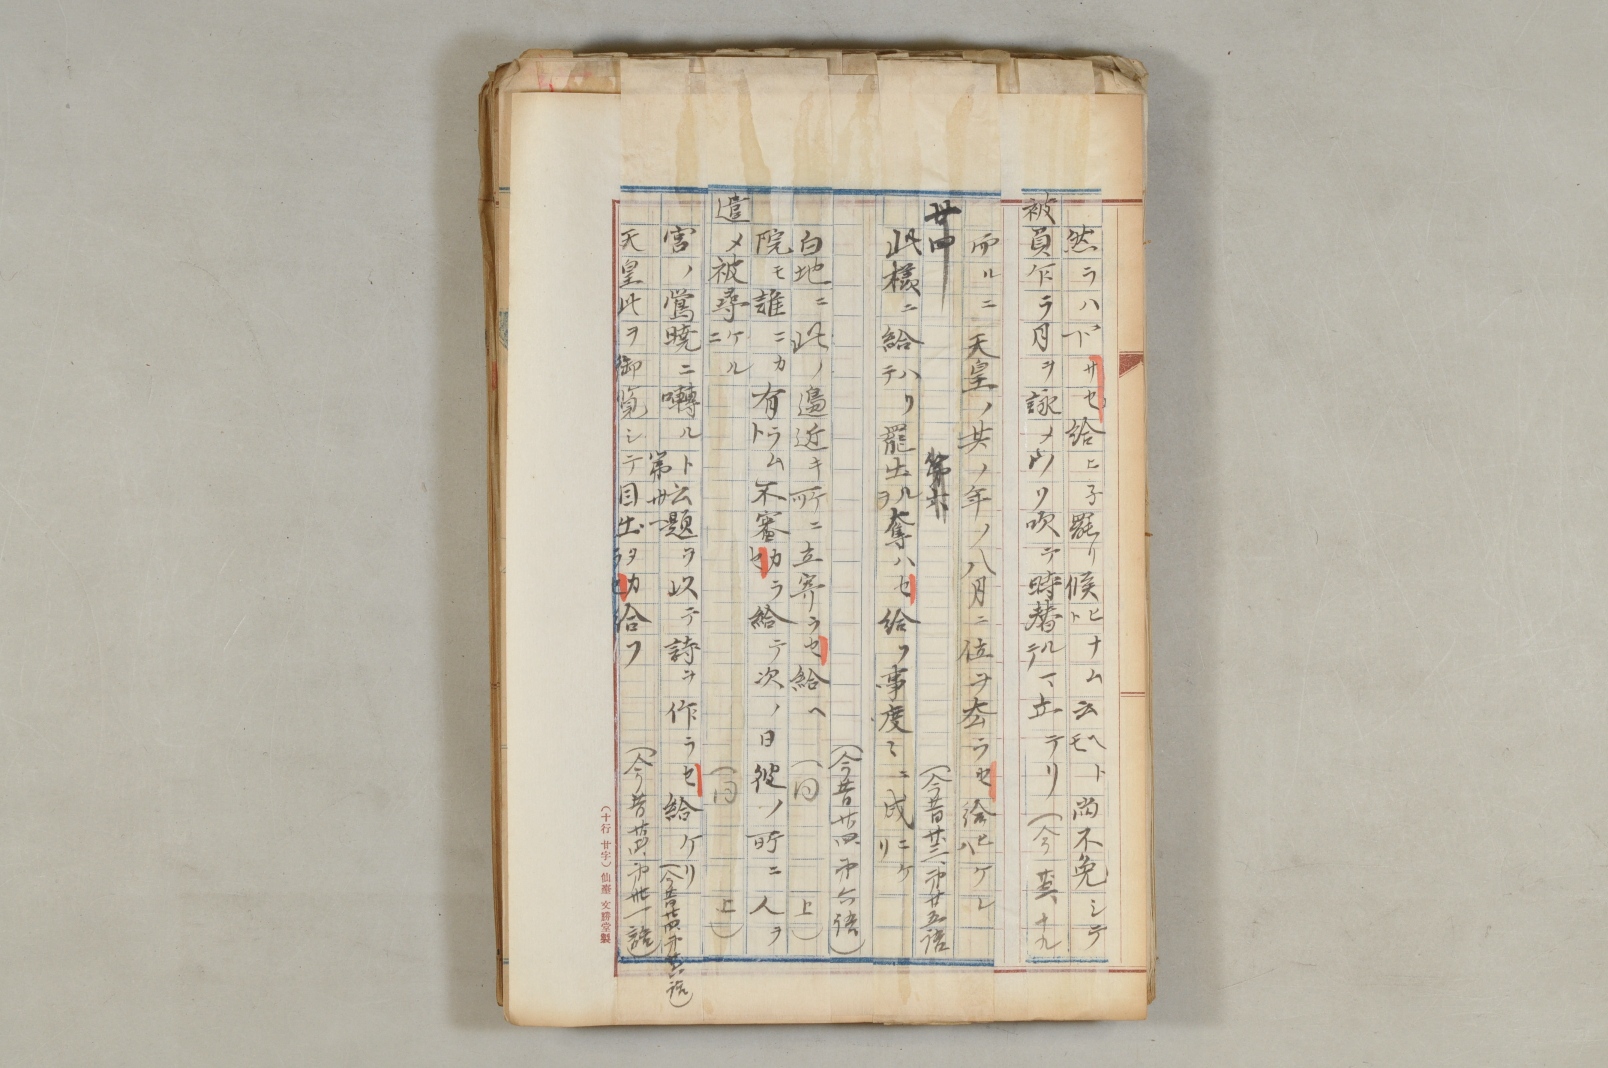 然ラハ下サセ給ヒ子罷リ候ヒナムト云ヘトモ尚不免シテ
被員乍ラ月ヲ詠メ
吹テ時替ルマテ立テリ(今昔
而ルニ天皇ノ其ノ年ノ八月ニ位ヲ去ラセ給ヒケレハ
(今昔廿三、第廿五語
廿四
第六
此樣ニ給ハリテ罷出ルヲ奪ハセ給フ事度〻ニ成ニケリ
(今昔廿四第六語)
白地ニ此ノ邊近キ所ニ立寄ラセ給ヘ(同上)
院モ誰ニカ有ラムト不審カラセ給テ次ノ日彼ノ所ニ人ヲ
遣メ被尋ケルニ(同上)
宮ノ鶯曉ニ囀ルト云題ヲ以テ詩ヲ作ラセ給ケリ(今昔廿四第廿六語)
第卅一
天皇此ヲ御覽シテ目出タカラセ給フ(今昔廿四、第卅一語)
(十行 廿字) 仙臺 文勝堂製